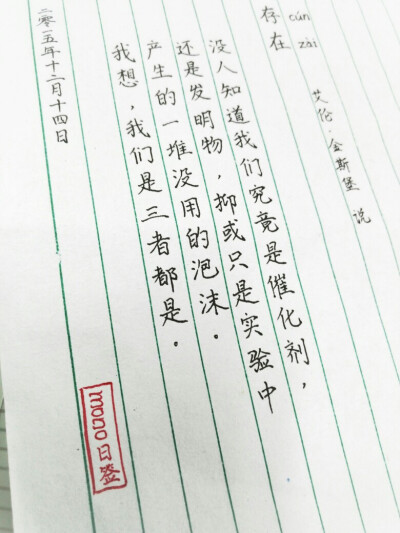 存在 cún zài
艾伦·金斯堡 说
没人知道我们究竟是催化剂，
还是发明物，抑或只是实验中
产生的一堆没用的泡沫。
我想，我们是三者都是。
二零一五年十二月十四日
mono日签